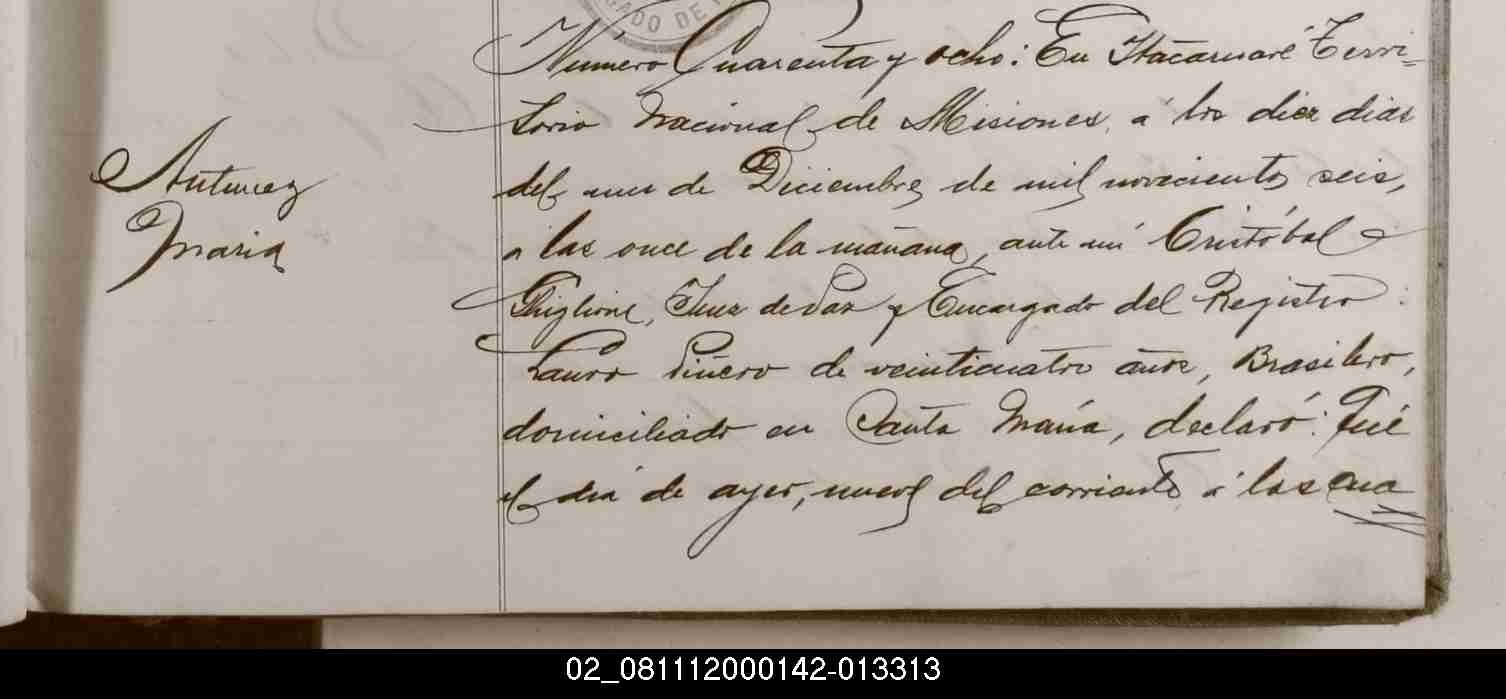 GADO DE
Número Cuarenta y ocho: En Itacaruaré Terri=
torio Nacional de Misiones, á los diez dias
Antunez
del mes de Diciembre de mil novecientos seis,
Maria
a las once de la mañana, ante mi Cristóbal
Ghiglione, Juez de Paz y Encargado del Registro:
Lauro Piñero de veinticuatro años, Brasilero,
domiciliado en Santa María, declaró: Qué
el dia de ayer, nueve del corriente, á las cua
02_081112000142-013313